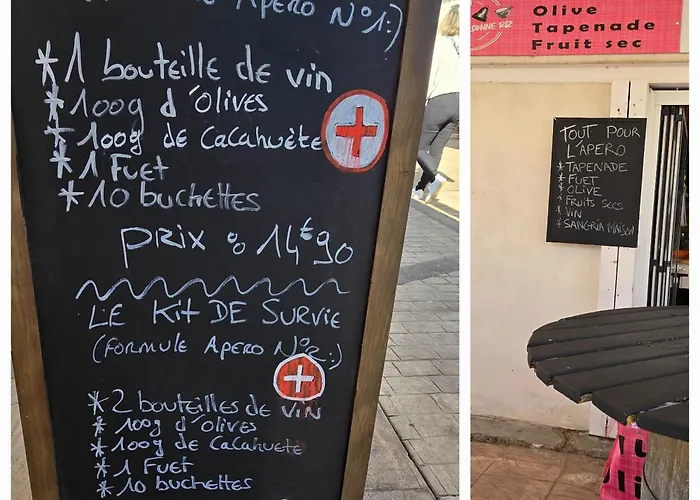 APERO N°1:)
*1 bouteille de vin
*100g d'olives
*100g de cacahuète
*1 Fuet
*10 buchettes
prix : 14€90
LE Kit DE SURVIE
(FORMULE APERO N°2:)
*2 bouteilles de VIN
*100g d'olives
*100g de cacahuete
*1 Fuet
*10 buchettes
Olive
Tapenade
Fruit sec
TOUT POUR
L'APERO
*TAPENADE
*FUET
*OLIVE
*FRUITS SECS
*VIN
*SANGRIA MAISON